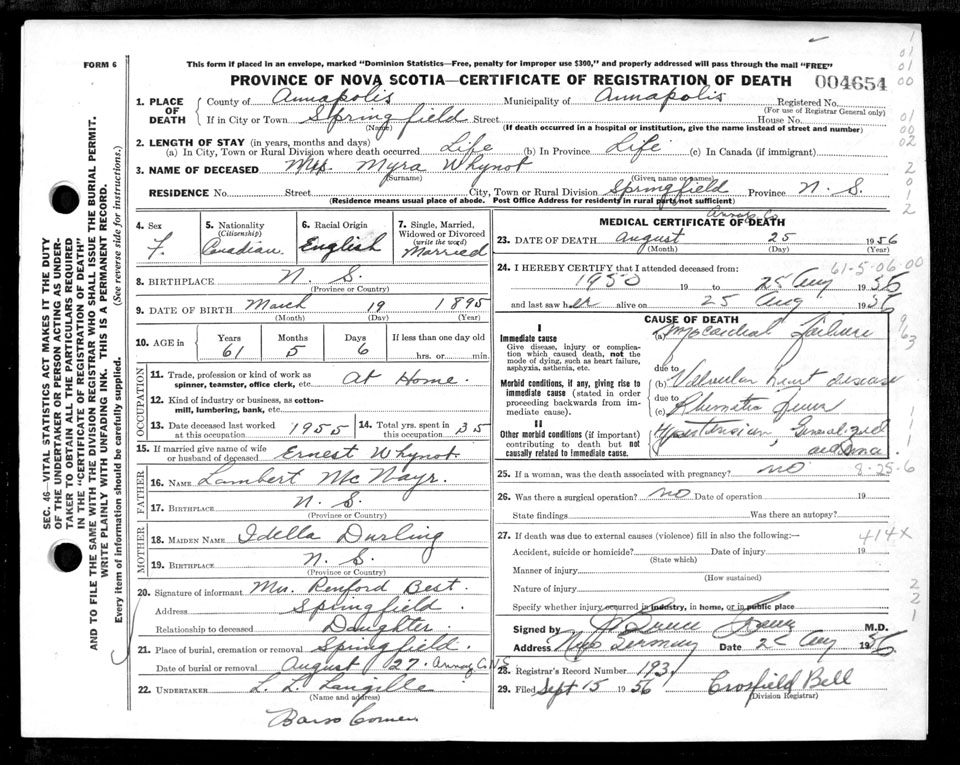 FORM 6
This form if placed in an envelope, marked "Dominion Statistics—Free, penalty for improper use $300," and properly addressed will pass through the mail "FREE"
PROVINCE OF NOVA SCOTIA—CERTIFICATE OF REGISTRATION OF DEATH 004654
1. PLACE OF DEATH
County of Annapolis Municipality of Annapolis Registered No.
(For use of Registrar General only)
If in City or Town Springfield Street House No.
(Name) (If death occurred in a hospital or institution, give the name instead of street and number)
2. LENGTH OF STAY (in years, months and days)
(a) In City, Town or Rural Division where death occurred Life (b) In Province Life (c) In Canada (if immigrant)
3. NAME OF DECEASED Mrs. Myra Whynot
(Surname) (Given name or names)
RESIDENCE No. Street City, Town or Rural Division Springfield Province N. S.
(Residence means usual place of abode. Post Office Address for residents in rural parts not sufficient)
Annap. Co.
4. Sex F.
5. Nationality (Citizenship) Canadian.
6. Racial Origin English
7. Single, Married, Widowed or Divorced (write the word) Married
8. BIRTHPLACE N. S.
(Province or Country)
9. DATE OF BIRTH March 19 1895
(Month) (Day) (Year)
10. AGE in Years 61 Months 5 Days 6 If less than one day old hrs. or min.
OCCUPATION
11. Trade, profession or kind of work as spinner, teamster, office clerk, etc. At Home.
12. Kind of industry or business, as cotton-mill, lumbering, bank, etc.
13. Date deceased last worked at this occupation 1955
14. Total yrs. spent in this occupation 35
15. If married give name of wife or husband of deceased Ernest Whynot
FATHER
16. NAME Lambert McNayr.
17. BIRTHPLACE N. S.
(Province or Country)
MOTHER
18. MAIDEN NAME Idella Durling
19. BIRTHPLACE N. S.
(Province or Country)
20. Signature of informant Mrs. Renford Best.
Address Springfield.
Relationship to deceased Daughter.
21. Place of burial, cremation or removal Springfield.
Date of burial or removal August 27. Annap Co N.S.
22. UNDERTAKER L. L. Langille
(Name and address)
Barss Corner
MEDICAL CERTIFICATE OF DEATH
23. DATE OF DEATH August 25 1956
(Month) (Day) (Year)
61-5-06-00
24. I HEREBY CERTIFY that I attended deceased from:
1950 19 to 25 Aug 1956
and last saw her alive on 25 Aug 1956
9/63
CAUSE OF DEATH
I
Immediate cause
Give disease, injury or complication which caused death, not the mode of dying, such as heart failure, asphyxia, asthenia, etc.
(a) Myocardial Failure
due to
Morbid conditions, if any, giving rise to immediate cause (stated in order proceeding backwards from immediate cause).
(b) Valvular heart disease
due to
(c) Rheumatic Fever
II
Other morbid conditions (if important) contributing to death but not causally related to immediate cause.
Hypertension, Generalized
edema.
25. If a woman, was the death associated with pregnancy? no 8-25-6
26. Was there a surgical operation? no Date of operation 19
State findings Was there an autopsy?
27. If death was due to external causes (violence) fill in also the following:— 414X
Accident, suicide or homicide? Date of injury 19
(State which)
Manner of injury
(How sustained)
Nature of injury
Specify whether injury occurred in industry, in home, or in public place
Signed by M.D.
Address New Germany Date 25 Aug 1956
28. Registrar's Record Number 193.
29. Filed Sept 15 1956 Crosfield Bell
(Division Registrar)
SEC. 46—VITAL STATISTICS ACT MAKES IT THE DUTY
OF THE UNDERTAKER OR PERSON ACTING AS UNDER-
TAKER TO OBTAIN ALL THE PARTICULARS REQUIRED
IN THE "CERTIFICATE OF REGISTRATION OF DEATH"
AND TO FILE THE SAME WITH THE DIVISION REGISTRAR WHO SHALL ISSUE THE BURIAL PERMIT.
WRITE PLAINLY WITH UNFADING INK. THIS IS A PERMANENT RECORD.
Every item of information should be carefully supplied. (See reverse side for instructions.)